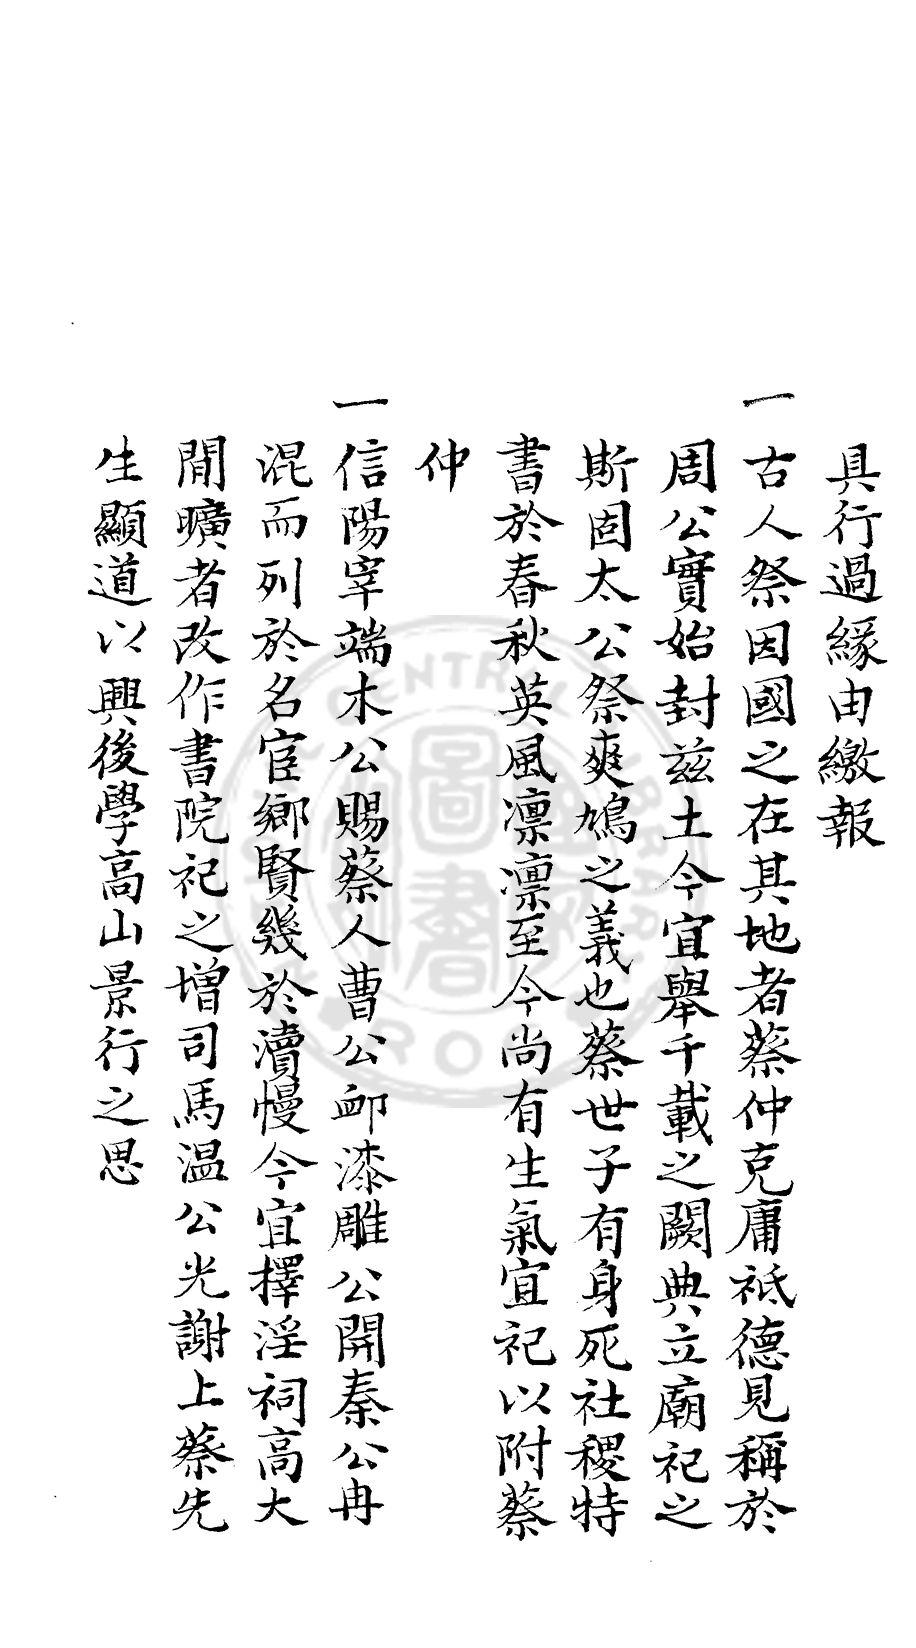 具行過緣由繳報
一古人祭因國之在其地者蔡仲克庸祗德見稱於
周公實始封茲土今宜舉千載之闕典立廟祀之
斯固太公祭爽鳩之義也蔡世子有身死社稷特
書於春秋英風凛凛至今尚有生氣宜祀以附蔡
仲
一信陽宰端木公賜蔡人曹公卹漆雕公開秦公冉
混而列於名宦鄉賢幾於瀆慢今宜擇淫祠高大
閒曠者改作書院祀之增司馬溫公光謝上蔡先
生顯道以興後學高山景行之思